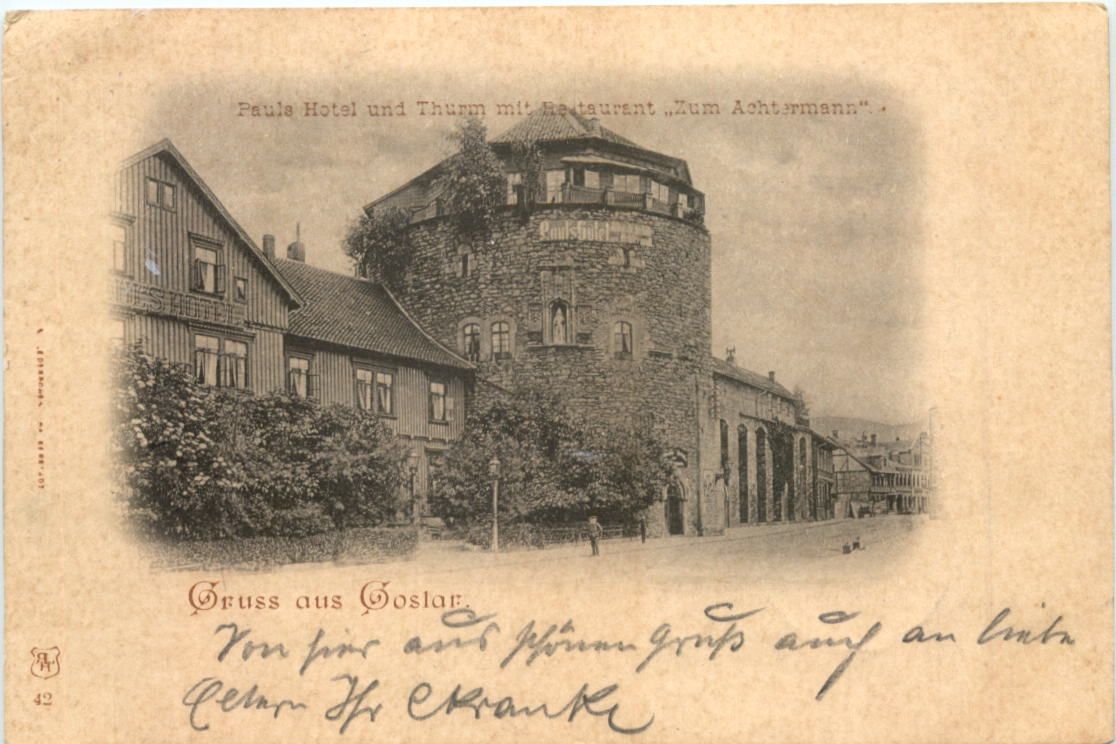 Pauls Hotel und Thurm mit Restaurant „Zum Achtermann“.
Pauls Hotel
Gruss aus Goslar.
Von hier aus schönen Gruß auch an liebe
Eltern Ihr
42